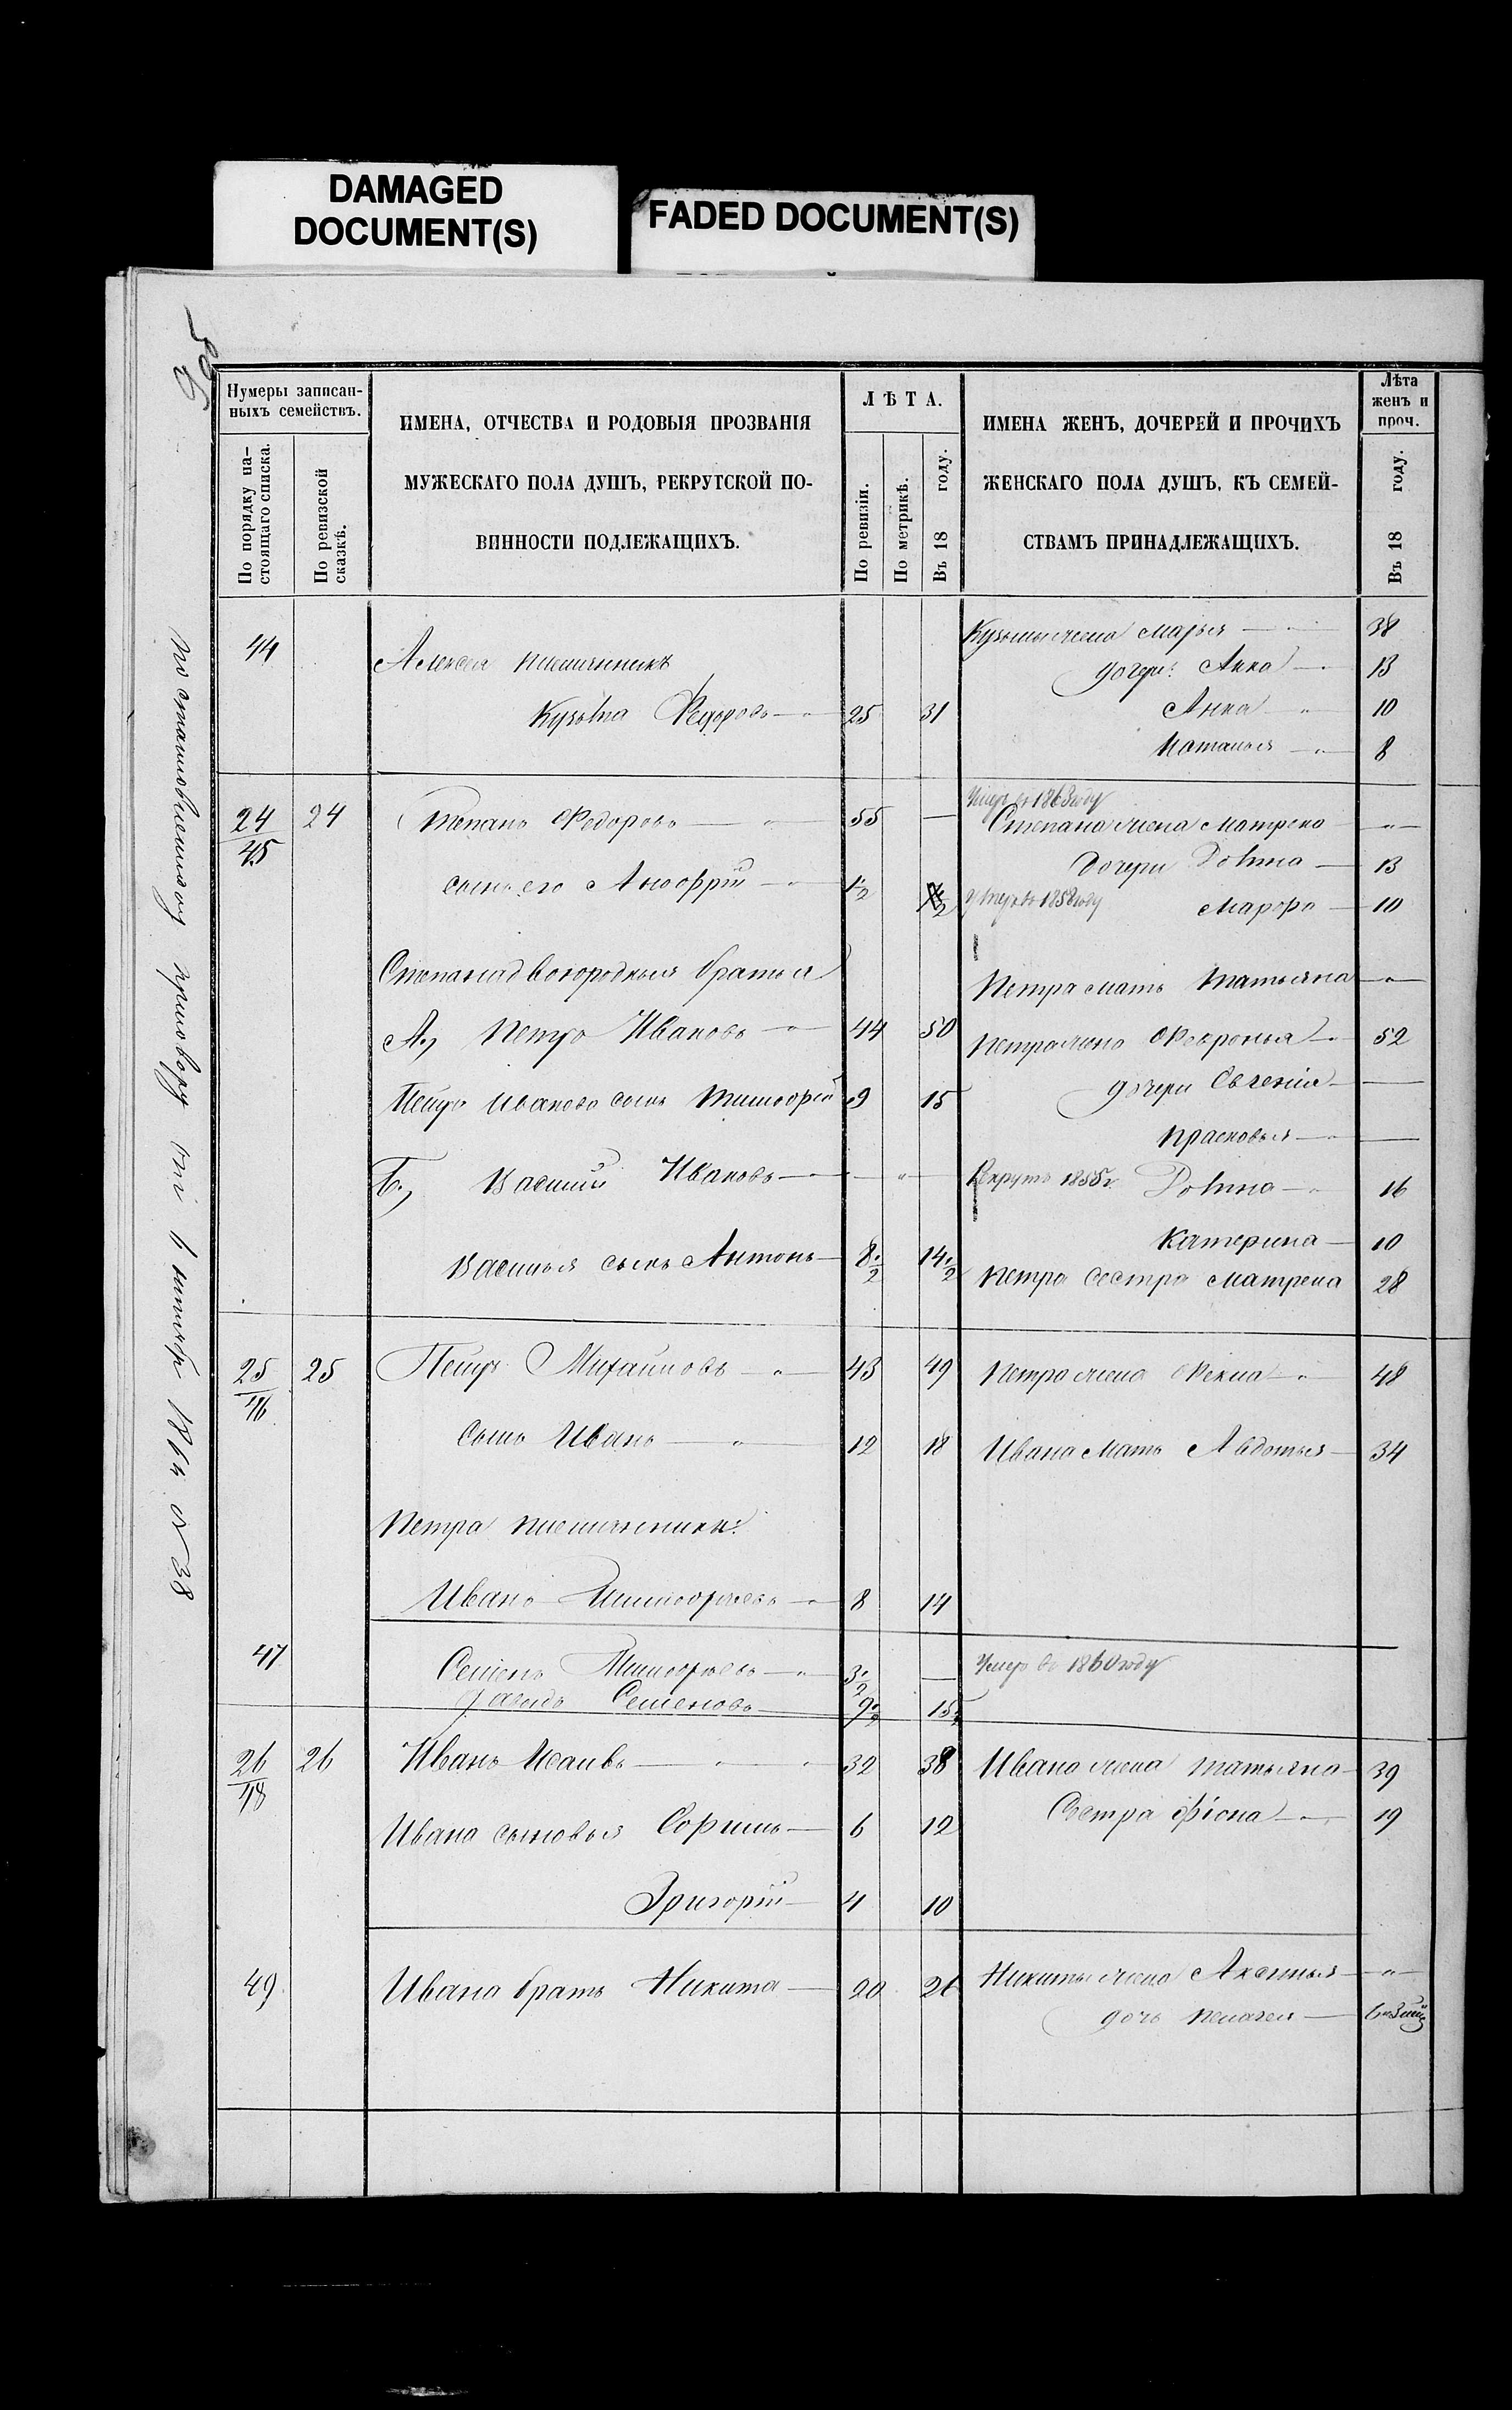 DAMAGED
DOCUMENT(S)
FADED DOCUMENT(S)
Нумеры записан-
ныхъ семействъ.
По порядку на-
стоящаго списка.
По ревизской
сказкѣ.
ИМЕНА, ОТЧЕСТВА И РОДОВЫЯ ПРОЗВАНІЯ
МУЖЕСКАГО ПОЛА ДУШЪ, РЕКРУТСКОЙ ПО-
ВИННОСТИ ПОДЛЕЖАЩИХЪ.
ЛѢТА.
По ревизіи.
По метрикѣ.
Въ 18 году.
ИМЕНА ЖЕНЪ, ДОЧЕРЕЙ И ПРОЧИХЪ
ЖЕНСКАГО ПОЛА ДУШЪ, КЪ СЕМЕЙ-
СТВАМЪ ПРИНАДЛЕЖАЩИХЪ.
Лѣта
женъ и
проч.
Въ 18 году.
44
Алексея племянникъ
Кузьма Федоровъ — 25 31
Кузьмы жена Марья — 38
дочери: Анна — 13
Анна — 10
Наталья — 8
24/45 24
Степанъ Федоровъ — 55 —
Умеръ въ 1863 году
Степана жена Матрена — "
дочери Домна — 13
сынъ его Ануфрій — 1/2
умеръ въ 1858 году
Марфа — 10
Степана двоюродныя братья
Петра мать Татьяна — "
А., Петръ Ивановъ — 44 50
Петра жена Февронья — 52
дочери Евгенія —
Петра Иванова сынъ Тимофей 9 15
Прасковья —
Б., Василій Ивановъ — "
Рекрутъ 1855 г.
Домна — 16
Катерина — 10
Василья сынъ Антонъ — 8 1/2 14 1/2
Петра сестра Матрена 28
25/46 25
Петръ Михайловъ — 43 49
Петра жена Фекла — 48
сынъ Иванъ — 12 18
Ивана мать Авдотья — 34
Петра племянники:
Иванъ Тимофеевъ — 8 14
47
Семенъ Тимофеевъ — 3 1/2 —
Умеръ въ 1860 году
Семеновъ — 9 1/2 15 1/2
26/48 26
Иванъ Исаивъ — 32 38
Ивана жена Татьяна — 39
Сестра Фіона — 19
Ивана сыновья Софинъ — 6 12
Григорій — 4 10
49
Ивана братъ Никита — 20 26
Никиты жена Аксинья — "
дочь Пелагея —
по становленному приговору
1864 N 38